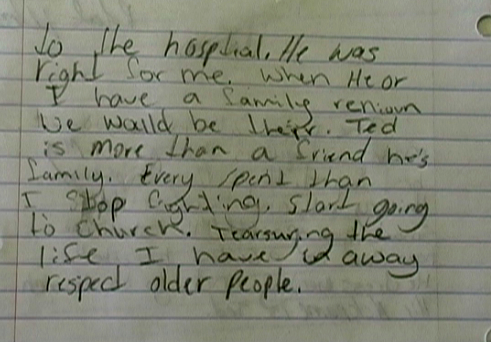 to the hosptial. He was
right for me. When He or
I have a family reniown
We walld be their. Ted
is more than a friend he's
family. Every spent than
I stop fighting. Start going
to church. Tearsuring the
life I have & away
respect older people.